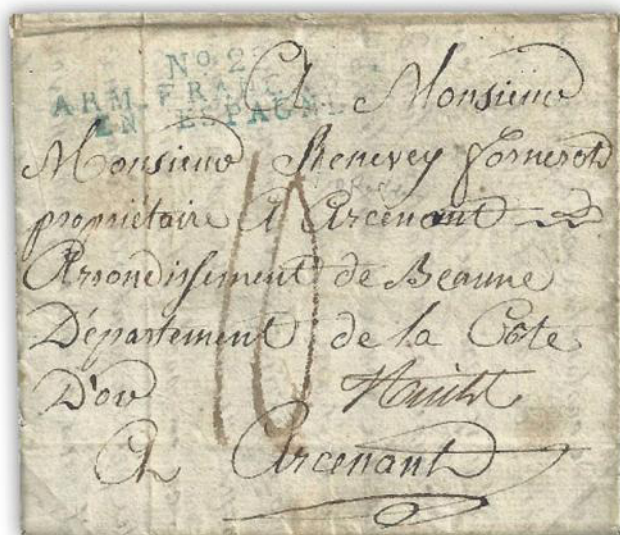 No 2
ARM. FRANC
EN ESPAGNE
A Monsieur
Monsieur Renevey fornerot
propriétaire A Arcenant
Arrondissement de Beaune
Département de la Cote
D'or Nuits
A Arcenant